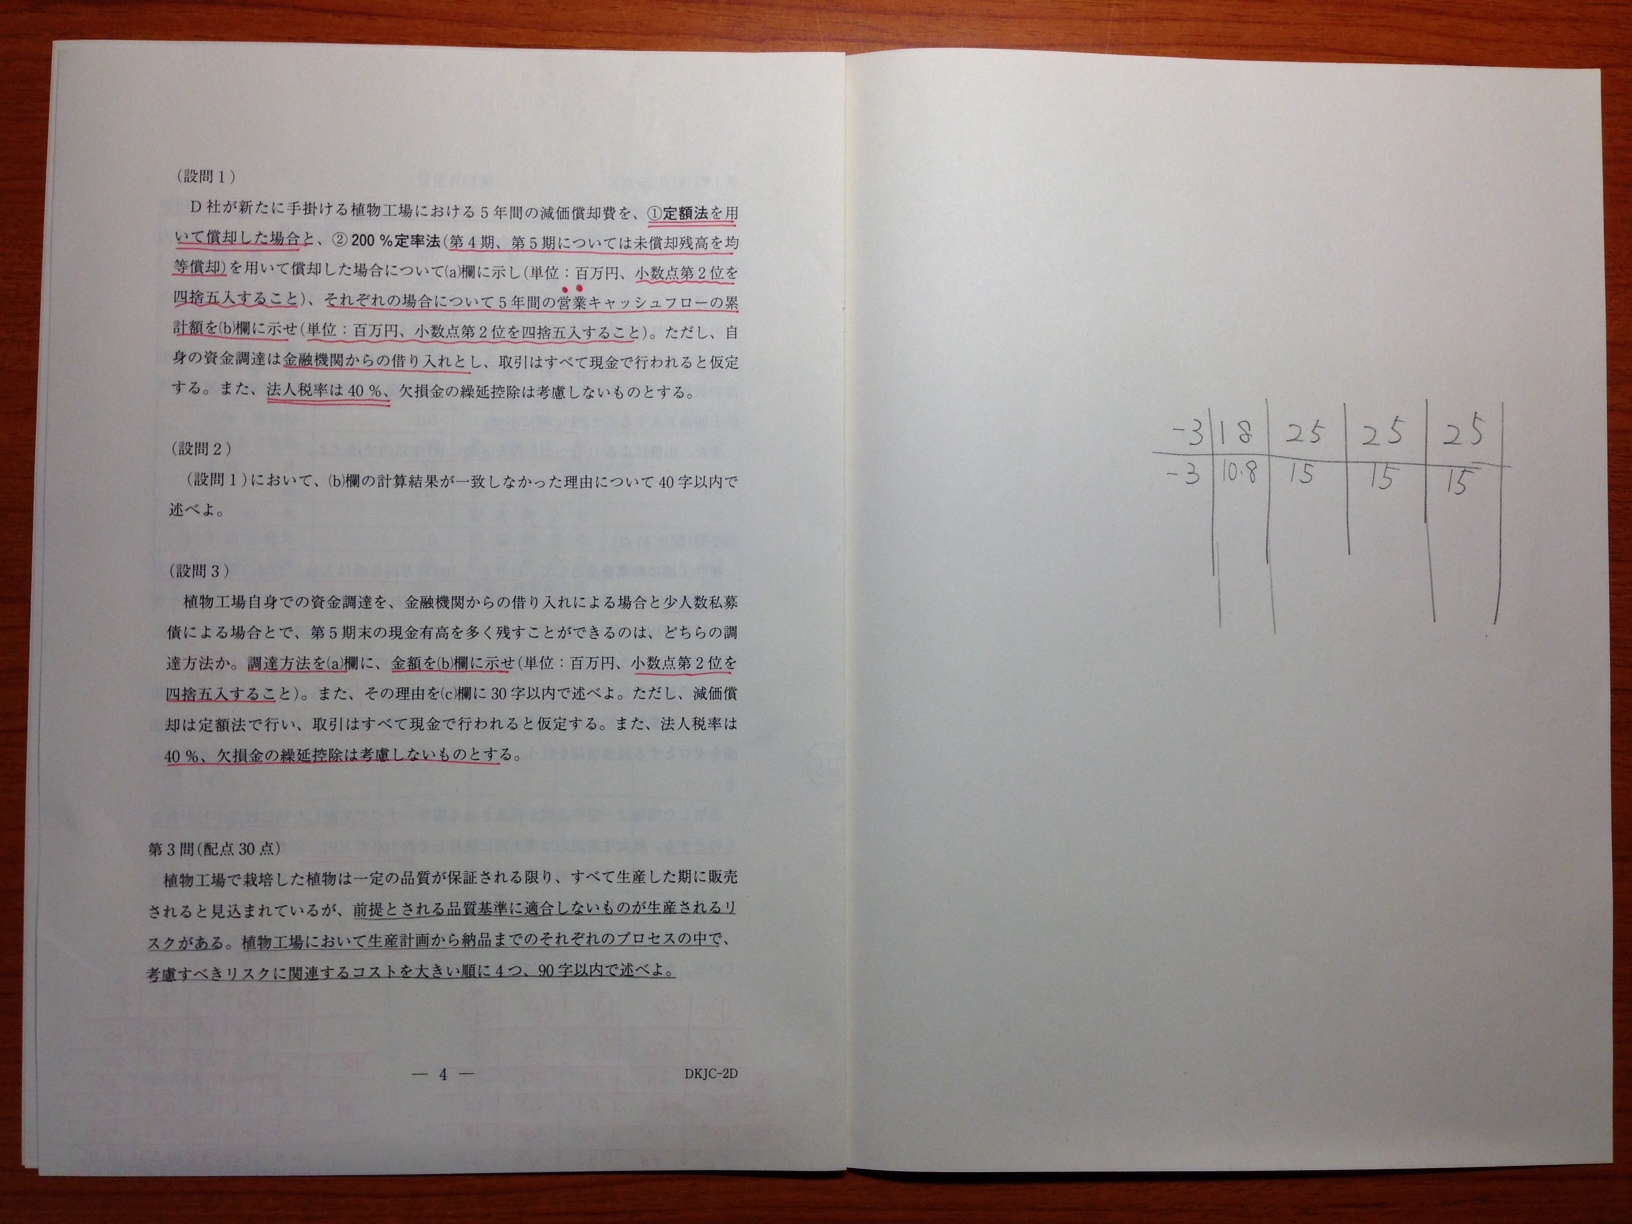 (設問1)
D社が新たに手掛ける植物工場における5年間の減価償却費を、①定額法を用
いて償却した場合と、②200%定率法(第4期、第5期については未償却残高を均
等償却)を用いて償却した場合について(a)欄に示し(単位：百万円、小数点第2位を
四捨五入すること)、それぞれの場合について5年間の営業キャッシュフローの累
計額を(b)欄に示せ(単位：百万円、小数点第2位を四捨五入すること)。ただし、自
身の資金調達は金融機関からの借り入れとし、取引はすべて現金で行われると仮定
する。また、法人税率は40%、欠損金の繰延控除は考慮しないものとする。
(設問2)
(設問1)において、(b)欄の計算結果が一致しなかった理由について40字以内で
述べよ。
(設問3)
植物工場自身での資金調達を、金融機関からの借り入れによる場合と少人数私募
債による場合とで、第5期末の現金有高を多く残すことができるのは、どちらの調
達方法か。調達方法を(a)欄に、金額を(b)欄に示せ(単位：百万円、小数点第2位を
四捨五入すること)。また、その理由を(c)欄に30字以内で述べよ。ただし、減価償
却は定額法で行い、取引はすべて現金で行われると仮定する。また、法人税率は
40%、欠損金の繰延控除は考慮しないものとする。
第3問(配点30点)
植物工場で栽培した植物は一定の品質が保証される限り、すべて生産した期に販売
されると見込まれているが、前提とされる品質基準に適合しないものが生産されるリ
スクがある。植物工場において生産計画から納品までのそれぞれのプロセスの中で、
考慮すべきリスクに関連するコストを大きい順に4つ、90字以内で述べよ。
— 4 —
DKJC-2D
-3 18 25 25 25
-3 10.8 15 15 15